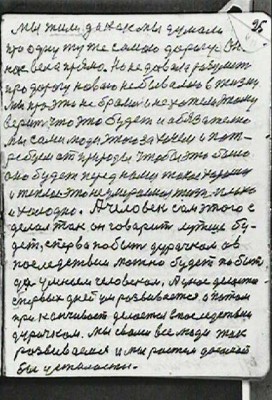 25
мы жили да как мы думали
про одну ту же самою дорогу. Он
нас вела прямо. Но не давала
про дорогу новою небывалою в жизни
мы про это не брали и не хотели этому
верить что это будет и обязательно
мы сами люди этого захочем и пот-
ребуем от природы чтобы это было
оно будет перед нами такое хорошее
и теплое это не умирать а то плохо
и холодно. А человек сам этого с
делал так он говорит лучше бу-
дет, сперва побыть дурачком а в
последствии можно будет побыть
да умным человеком. А у нас делается
спервых дней ум развивается а потом
при кончивает делается в последствии
дурачком. мы свами все люди так
развиваемся и мы растем до своей
бы усталости.